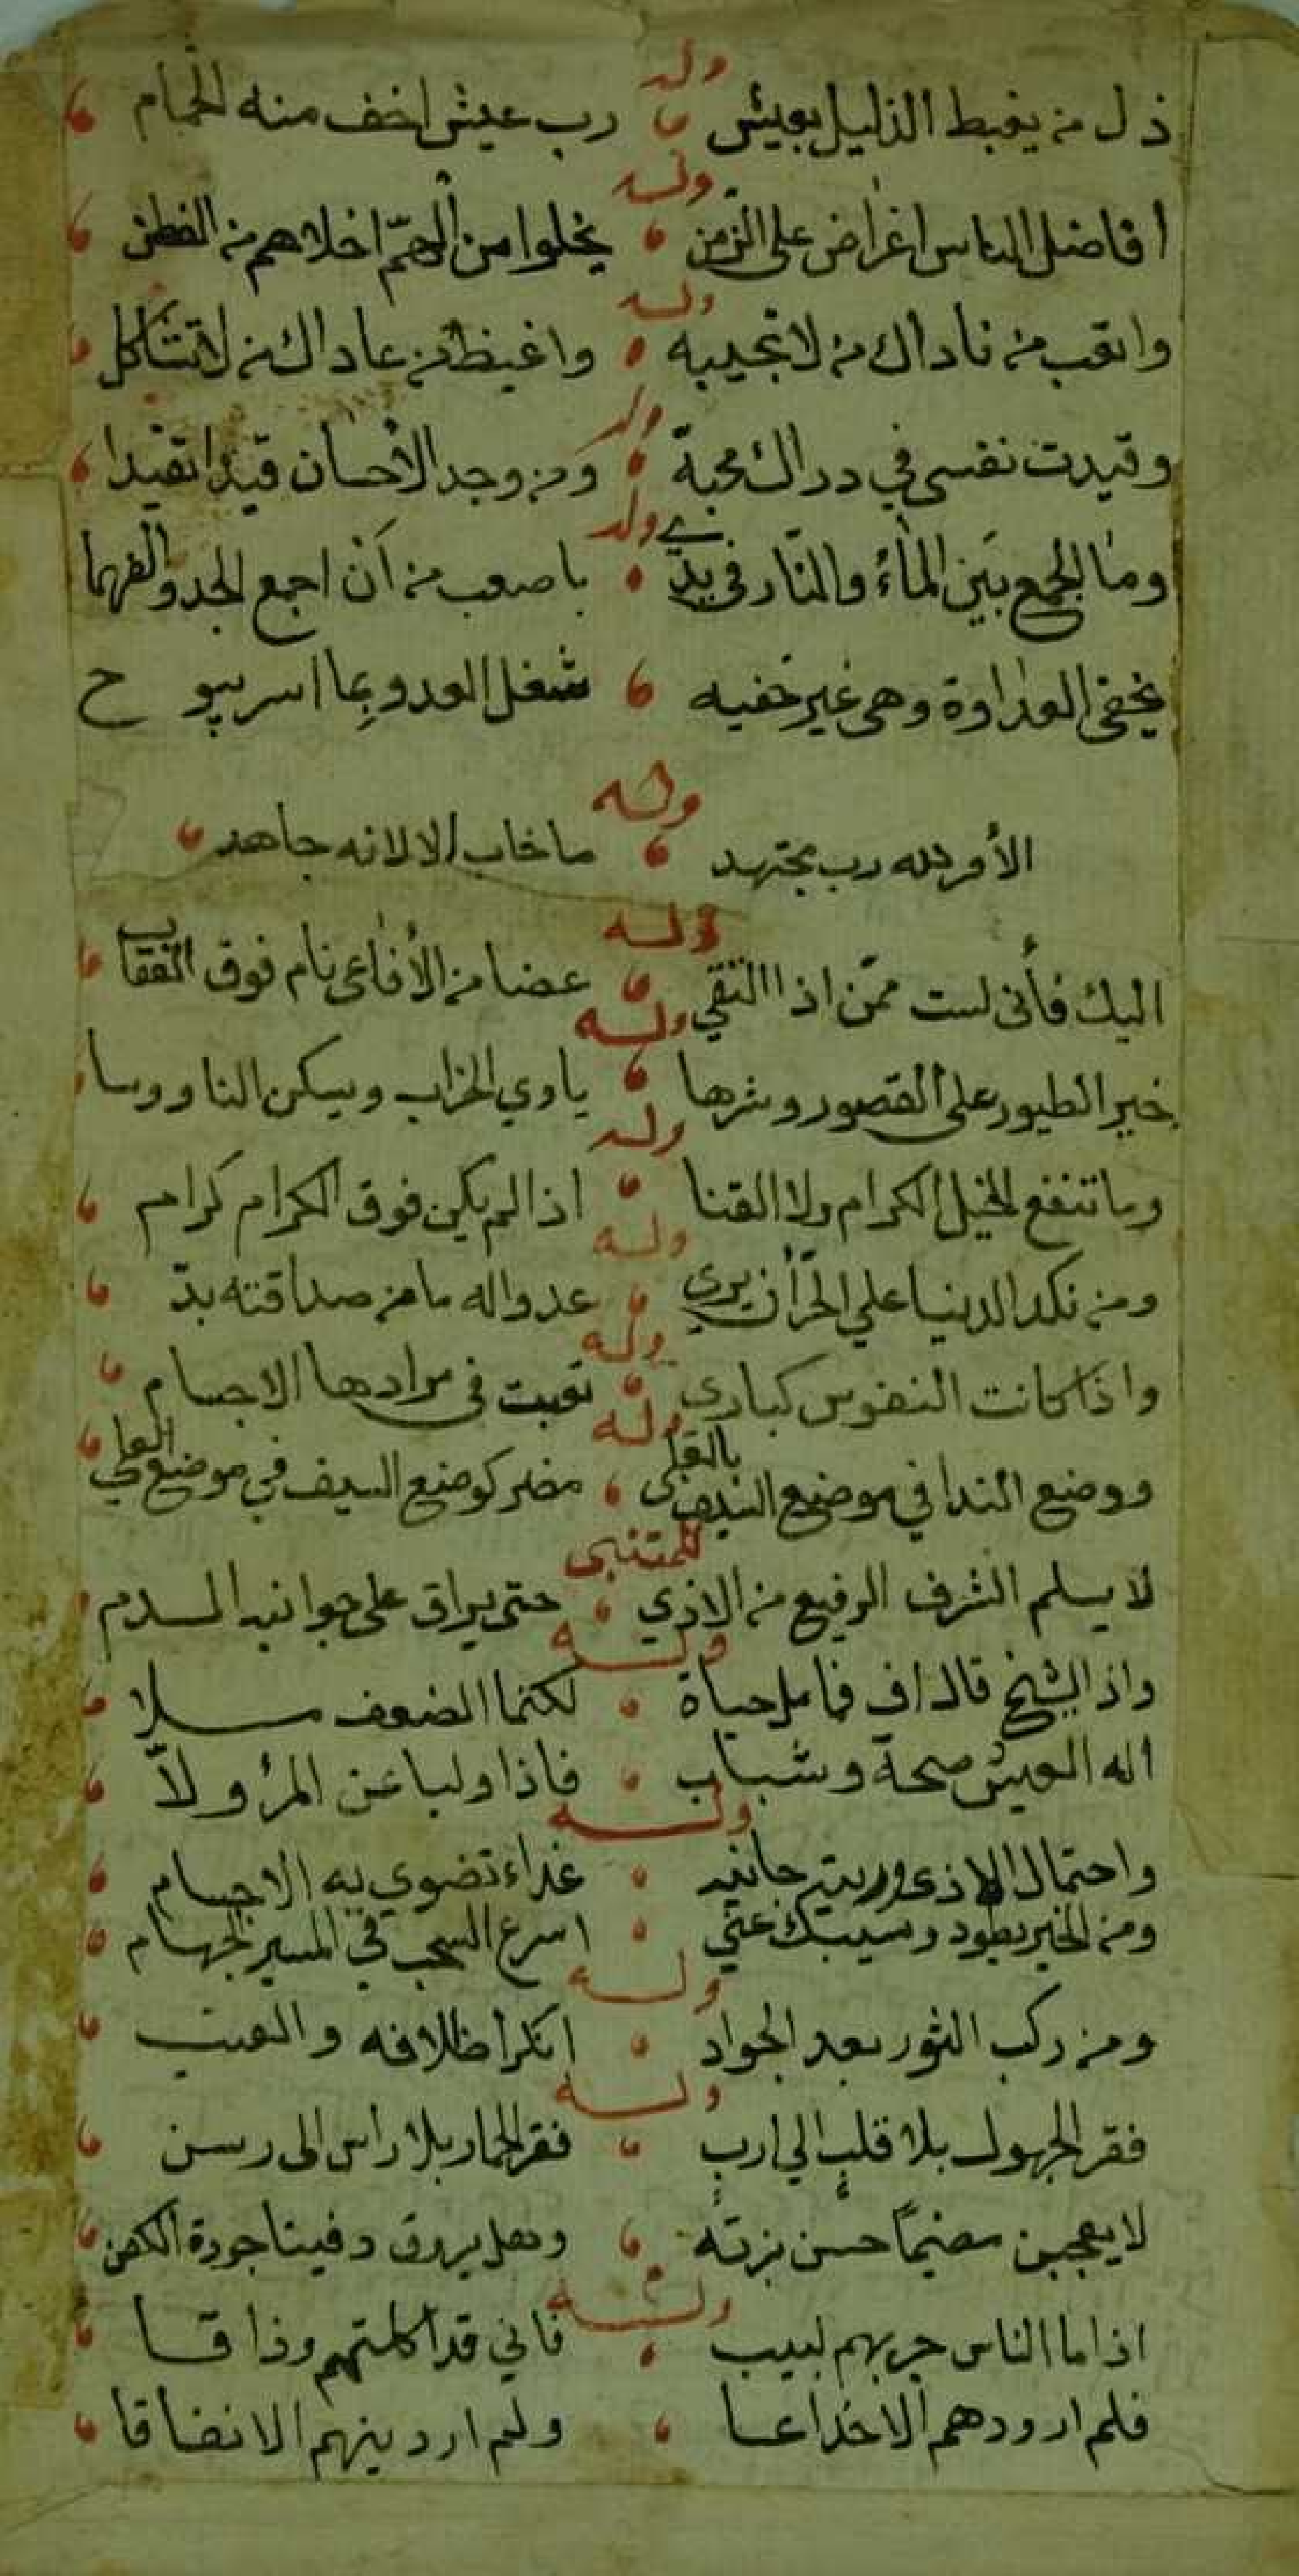 وله
ذل من يغبط الذليل بعيش رب عيش اخف منه الحمام
وله
أفاضل الناس اغراض على الزمن يخلوا من الهمّ اخلاهم من الفطن
وله
واتعب من ناداك من لا تجيبه واغيظ من عاداك من لا تشاكل
وله
وقيدت نفسي في دراك محبة ومن وجد الاحسان قيدا تقيدا
وله
وما الجمع بين الماء والنار في يدي باصعب من أن اجمع الجد والفهما
يخفى العداوة وهى غير خفيه شغل العدو بما اسر يبوح
وله
الأمر لله رب مجتهد ما خاب الا لانه جاهد
وله
اليك فأنى لست ممّن اذا اتقي عضا من الأفاعى نام فوق
وله
خير الطيور على القصور وشرها ياوي الخراب ويسكن الناووسا
وله
وما تنفع الخيل الكرام ولا القنا اذا لم يكن فوق الكرام كرام
وله
ومن نكد الدنيا علي الحرّ أن يرى عدوا له ما من صداقته بدّ
وله
واذا كانت النفوس كبارى تعبت في مرادها الاجسام
وله
ووضع الندا في موضع السيف بالعلى مضر كوضع السيف في موضع
للمتنبى
لا يسلم الشرف الرفيع من الاذي حتى يراق على جوانبه الدم
وله
واذا الشيخ قال اف فما مل حياة لكنما الضعف ملا
اله العيش صحة وشباب فاذا وليا عن المرؤ ولاّ
وله
واحتمال الاذى ورؤيتر جانيه غداء تضوي به الاجسام
ومن الخير بطود وسيبك عنّي اسرع السحب في المسير الجهام
وله
ومن ركب الثور بعد الجواد انكر اظلافه والغبب
وله
فقر الجهول بلا قلب الي ارب فقر الحمار بلا راس الى رسن
لا يعجبن مضيمًا حسن بزته وهل يروق دفينا جودة الكفن
وله
اذا ما الناس جربهم لبيب فاني قد اكلتهم وذاقا
فلم ار ودهم الا خداعا ولم ار دينهم الا نفاقا